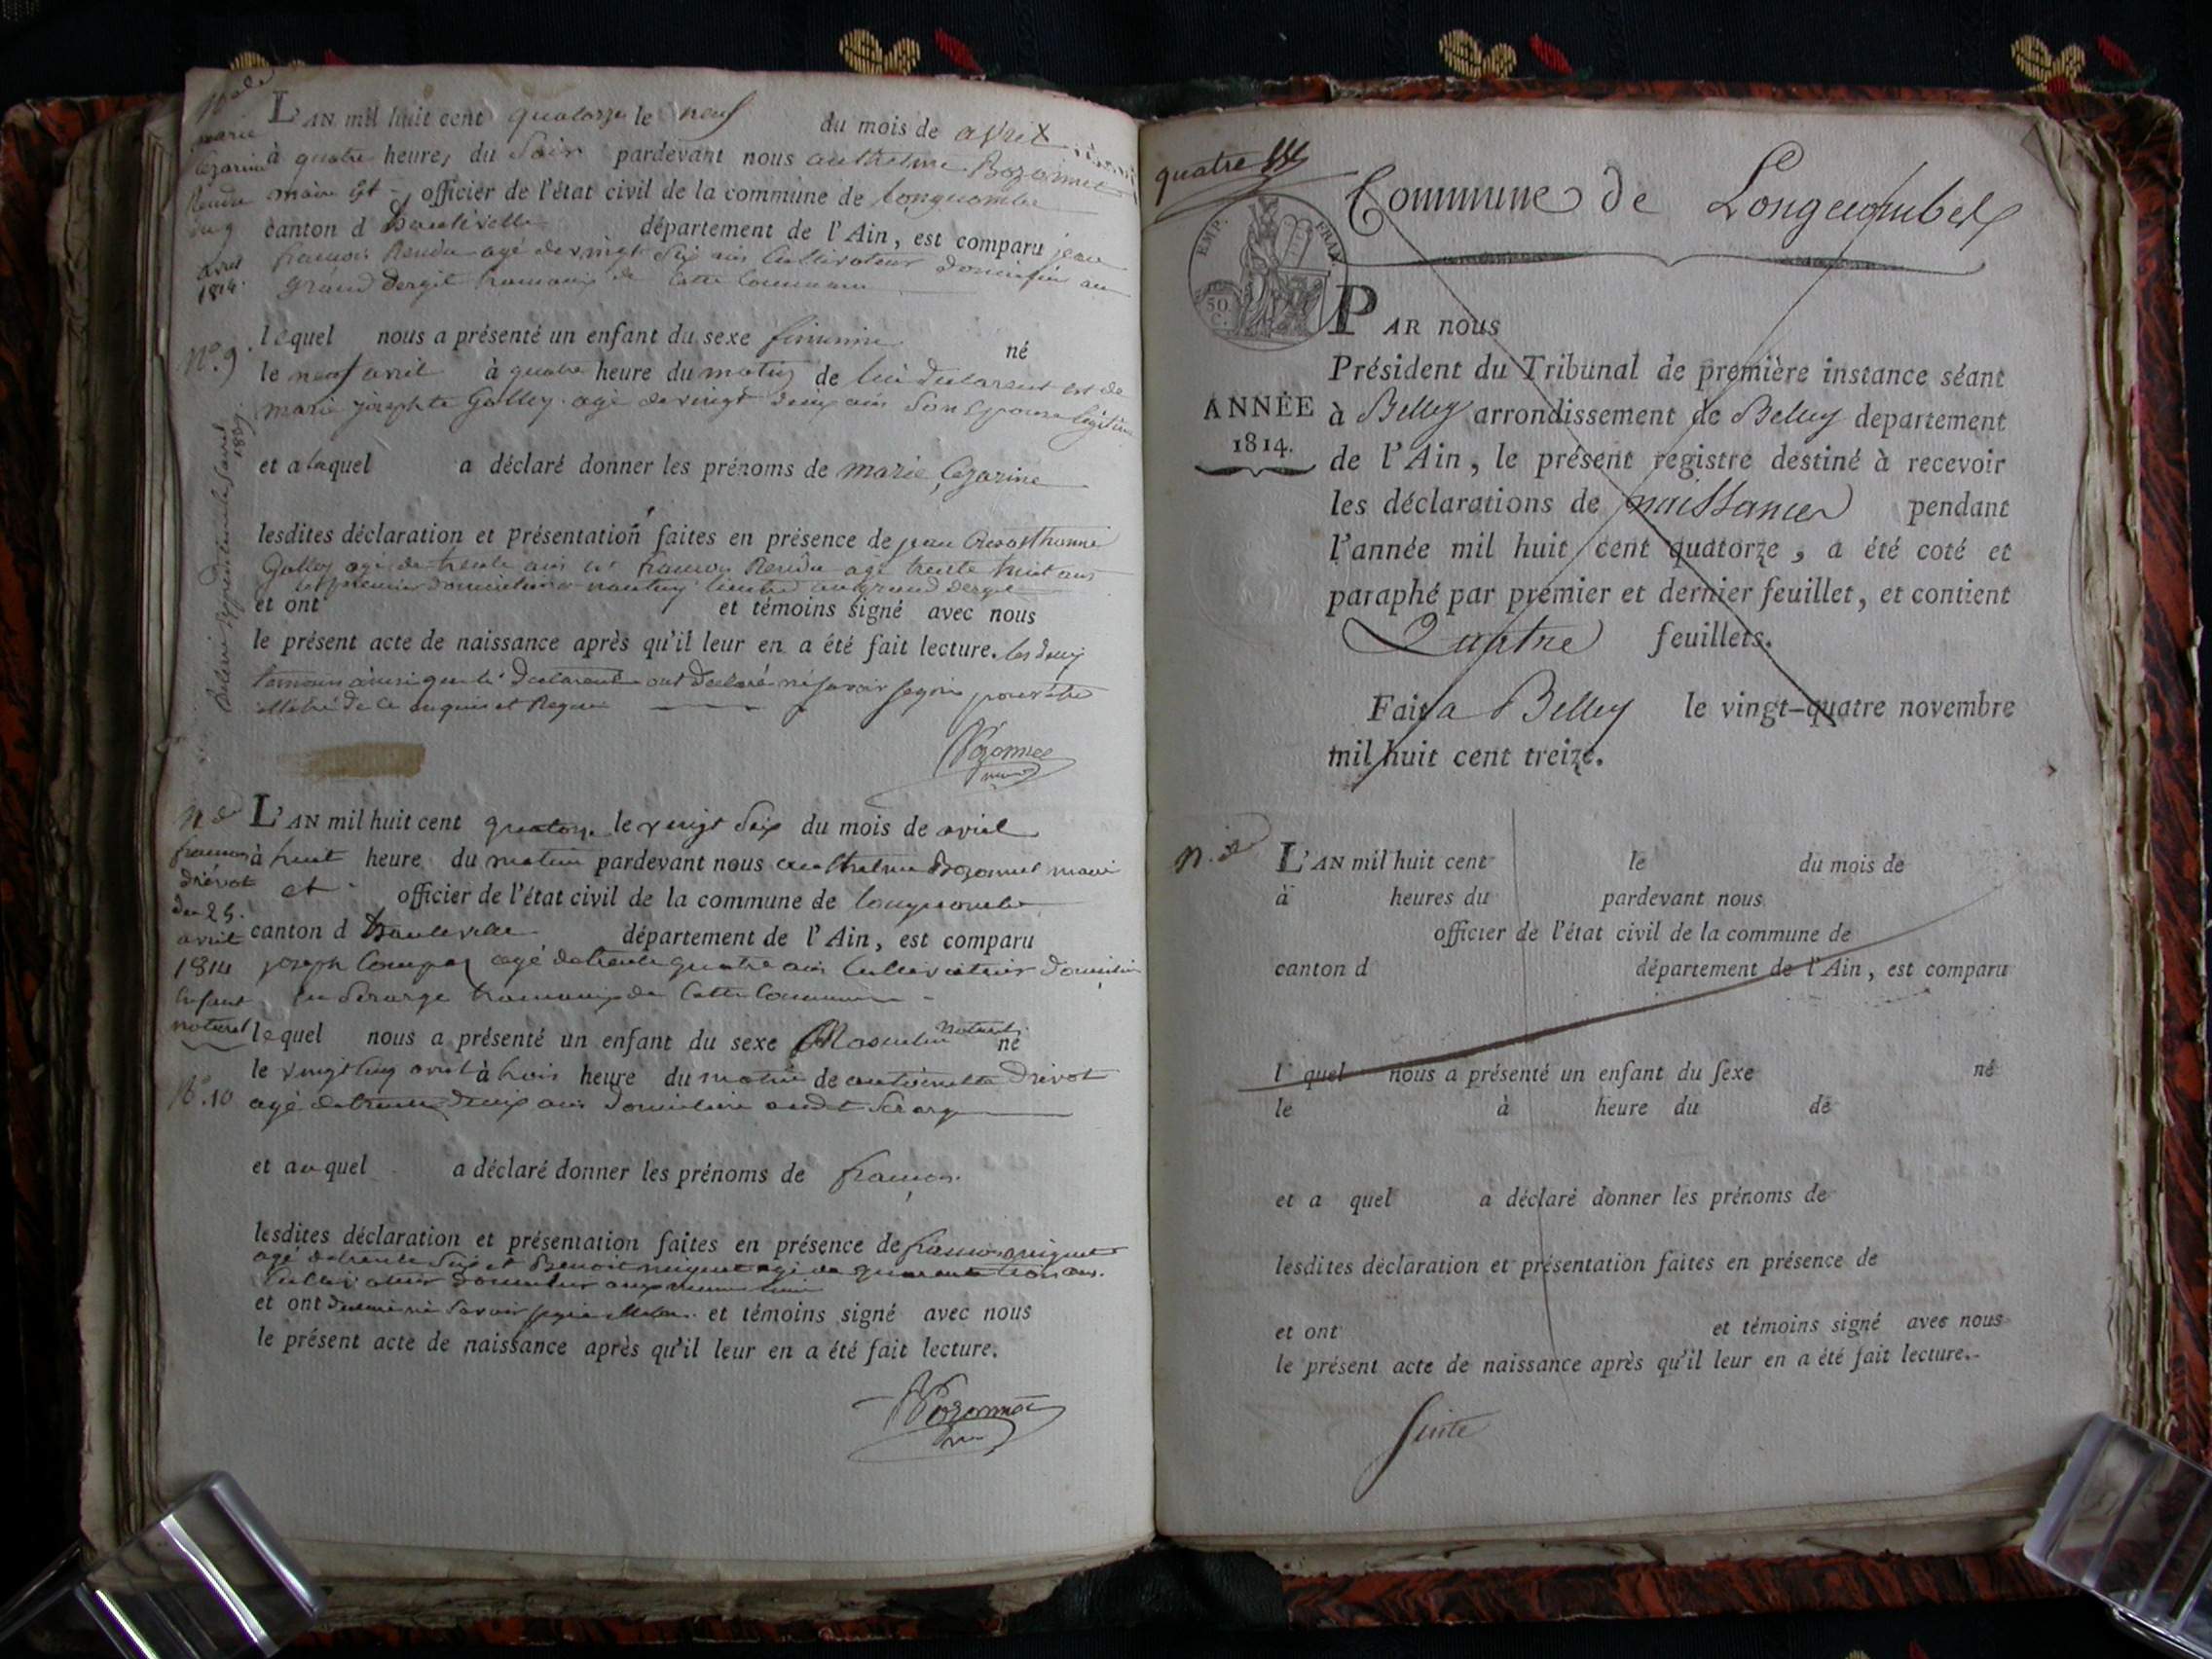 N. de
marie
Cezarine
Rendu
du 9
avril
1814.
N.º 9
L'AN mil huit cent quatorze le neuf du mois de avril
à quatre heures du Soir pardevant nous anthelme Bozonnet
maire et officier de l'état civil de la commune de longecombe
canton d hauteville département de l'Ain, est comparu jean
francois Rendu agé de vingt Six ans Cultivateur domicilié au
grand dergit hameaux de Cette Commune
lequel nous a présenté un enfant du sexe feminin né
le neuf avril à quatre heure du matin de lui declarant et de
marie josephte Golley agé de vingt deux ans Son Epouse légitime
et a laquel a déclaré donner les prénoms de marie Cezarine
lesdites déclaration et présentation faites en présence de jean
Golley agé de trente ans et francois Rendu agé trente huit ans
et ont et témoins signé avec nous
le présent acte de naissance après qu'il leur en a été fait lecture. les deux
temoins ainsi que le declarant ont declaré ne savoir signer pour etre
illetré de ce enquis et Requis
Bozonnet
maire
N. de
francois
drévot
du 25.
avril
1814
Enfant
naturel
N.º 10
L'AN mil huit cent quatorze le vingt Six du mois de avril
à huit heure du matin pardevant nous anthelme Bozonnet maire
et officier de l'état civil de la commune de longecombe
canton d hauteville département de l'Ain, est comparu
joseph agé de trente quatre ans Cultivateur domicilié
en hameaux de Cette Commune
lequel nous a présenté un enfant du sexe Masculin naturel né
le vingt cinq avril à trois heure du matin de antoinette Drévot
agé de trente deux ans domiciliée audit
et au quel a déclaré donner les prénoms de francois
lesdites déclaration et présentation faites en présence de francois
agé de trente Six et Benoit agé de quarante trois ans.
Cultivateur domicilier au meme lieu
et ont declaré ne Savoir signer et témoins signé avec nous
le présent acte de naissance après qu'il leur en a été fait lecture.
Bozonnet
quatre
Commune de Longecombe
EMP. FRAN.
50
C.
ANNÉE
1814.
PAR nous
Président du Tribunal de première instance séant
à Belley arrondissement de Belley departement
de l'Ain, le présent registre destiné à recevoir
les déclarations de naissances pendant
l'année mil huit cent quatorze, a été coté et
paraphé par premier et dernier feuillet, et contient
Quatre feuillets.
Fait a Belley le vingt-quatre novembre
mil huit cent treize.
N. de
L'AN mil huit cent le du mois de
à heures du pardevant nous
officier de l'état civil de la commune de
canton d département de l'Ain, est comparu
l quel nous a présenté un enfant du sexe né
le à heure du de
et a quel a déclaré donner les prénoms de
lesdites déclaration et présentation faites en présence de
et ont et témoins signé avec nous
le présent acte de naissance après qu'il leur en a été fait lecture.
Suite